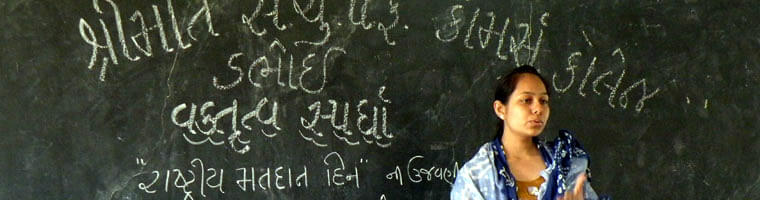 શ્રીમતિ કોમર્સ કોલેજ
ડભોઈ
વકતૃત્વ સ્પર્ધા
"રાષ્ટ્રીય મતદાન દિન" ની ઉજવણી